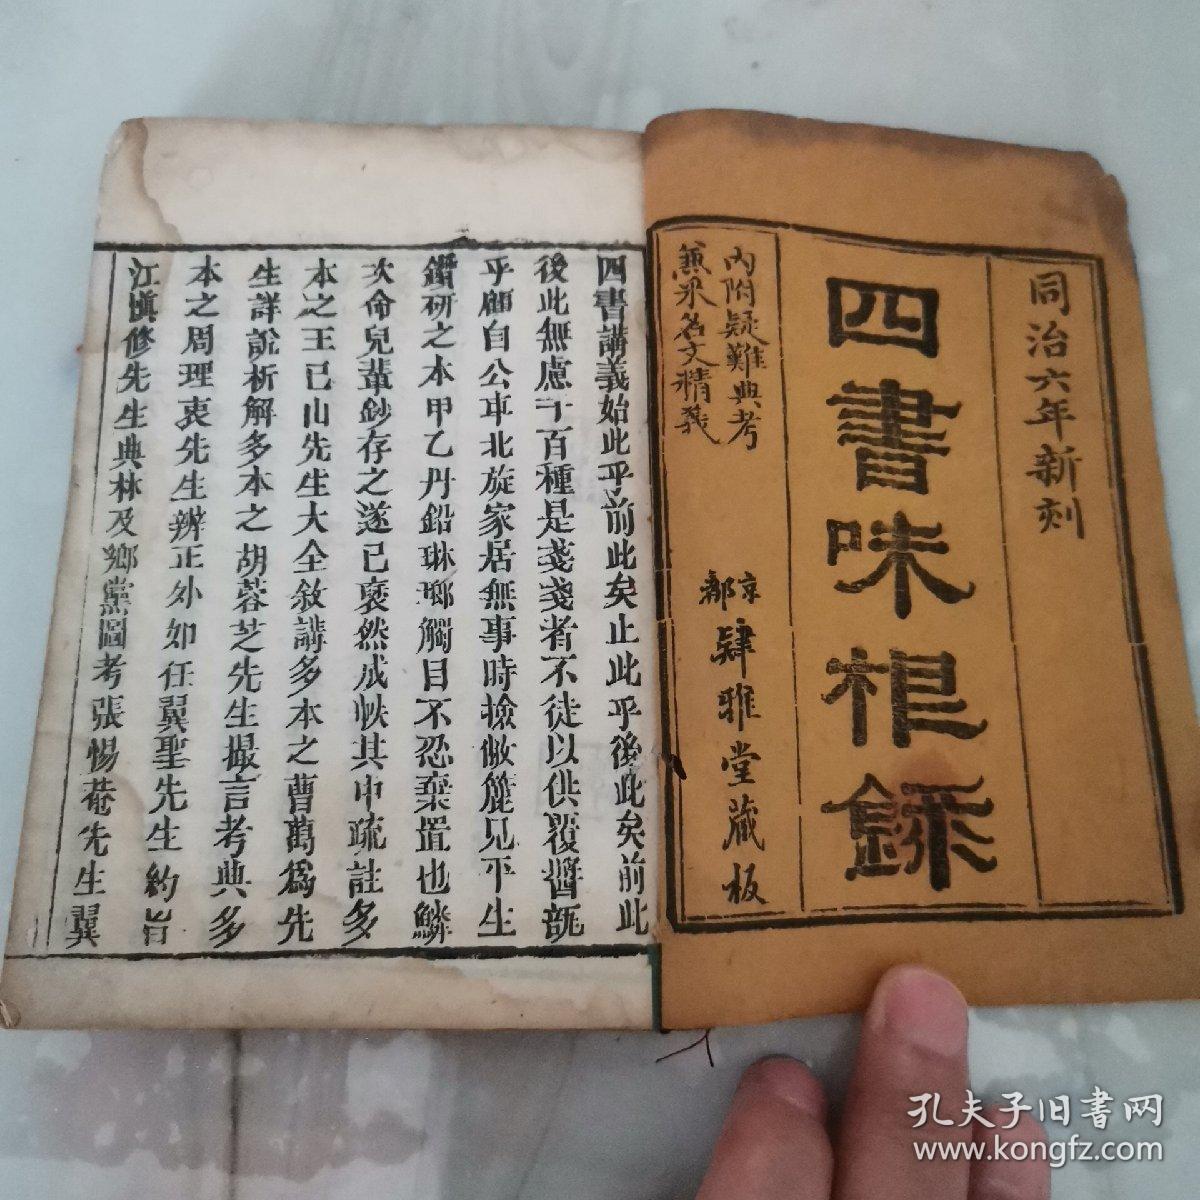 同治六年新刻
四書味根錄
內附疑難典考
兼采名文精義
京都
肄雅堂藏板
四書講義始此乎前此矣止此乎後此矣前此
後此無慮千百種是戔戔者不徒以供覆醬瓿
乎顧自公車北旋家居無事時撿敝簏見平生
鑽研之本甲乙丹鉛琳瑯觸目不忍棄置也鱗
次命兒輩鈔存之遂已裒然成帙其中疏註多
本之王已山先生大全敘講多本之曹萬為先
生詳說析解多本之胡蓉芝先生撮言考典多
本之周理衷先生辨正外如任翼聖先生約旨
江慎修先生典林及鄉黨圖考張惕菴先生翼
孔夫子旧书网
www.kongfz.com